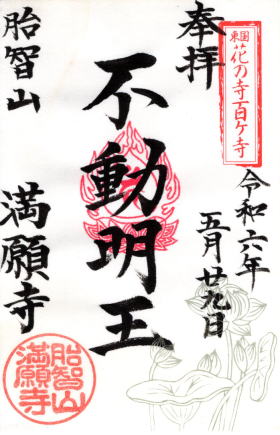 奉拝
東国花の寺百ヶ寺
令和六年
五月廿九日
不動明王
胎智山
満願寺
胎智山
満願寺